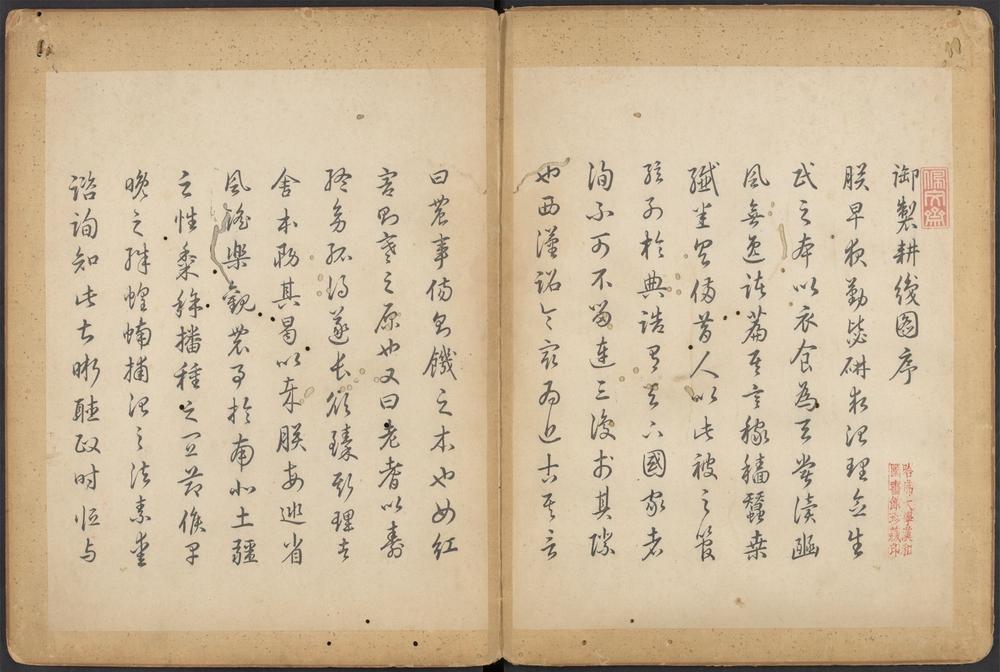 佩文齋
御製耕織圖序
朕早夜勤毖研求治理念生
民之本以衣食為天嘗讀豳
風無逸諸篇其言稼穡蠶桑
纖悉具備昔人以此被之管
弦列於典誥有天下國家者
洵不可不留連三復於其際
也西漢詔令最為近古其言
曰農事傷則饑之本也女紅
害則寒之原也又曰老耆以壽
終幼孤得遂長欲臻斯理者
舍本務其曷以哉朕每巡省
風謠樂觀農事於南北土疆
之性黍稌播種之宜節候早
晚之殊蝗蝻捕治之法素愛
諮詢知此甚晰聽政時恒与
哈佛大學漢和
圖書館珍藏印